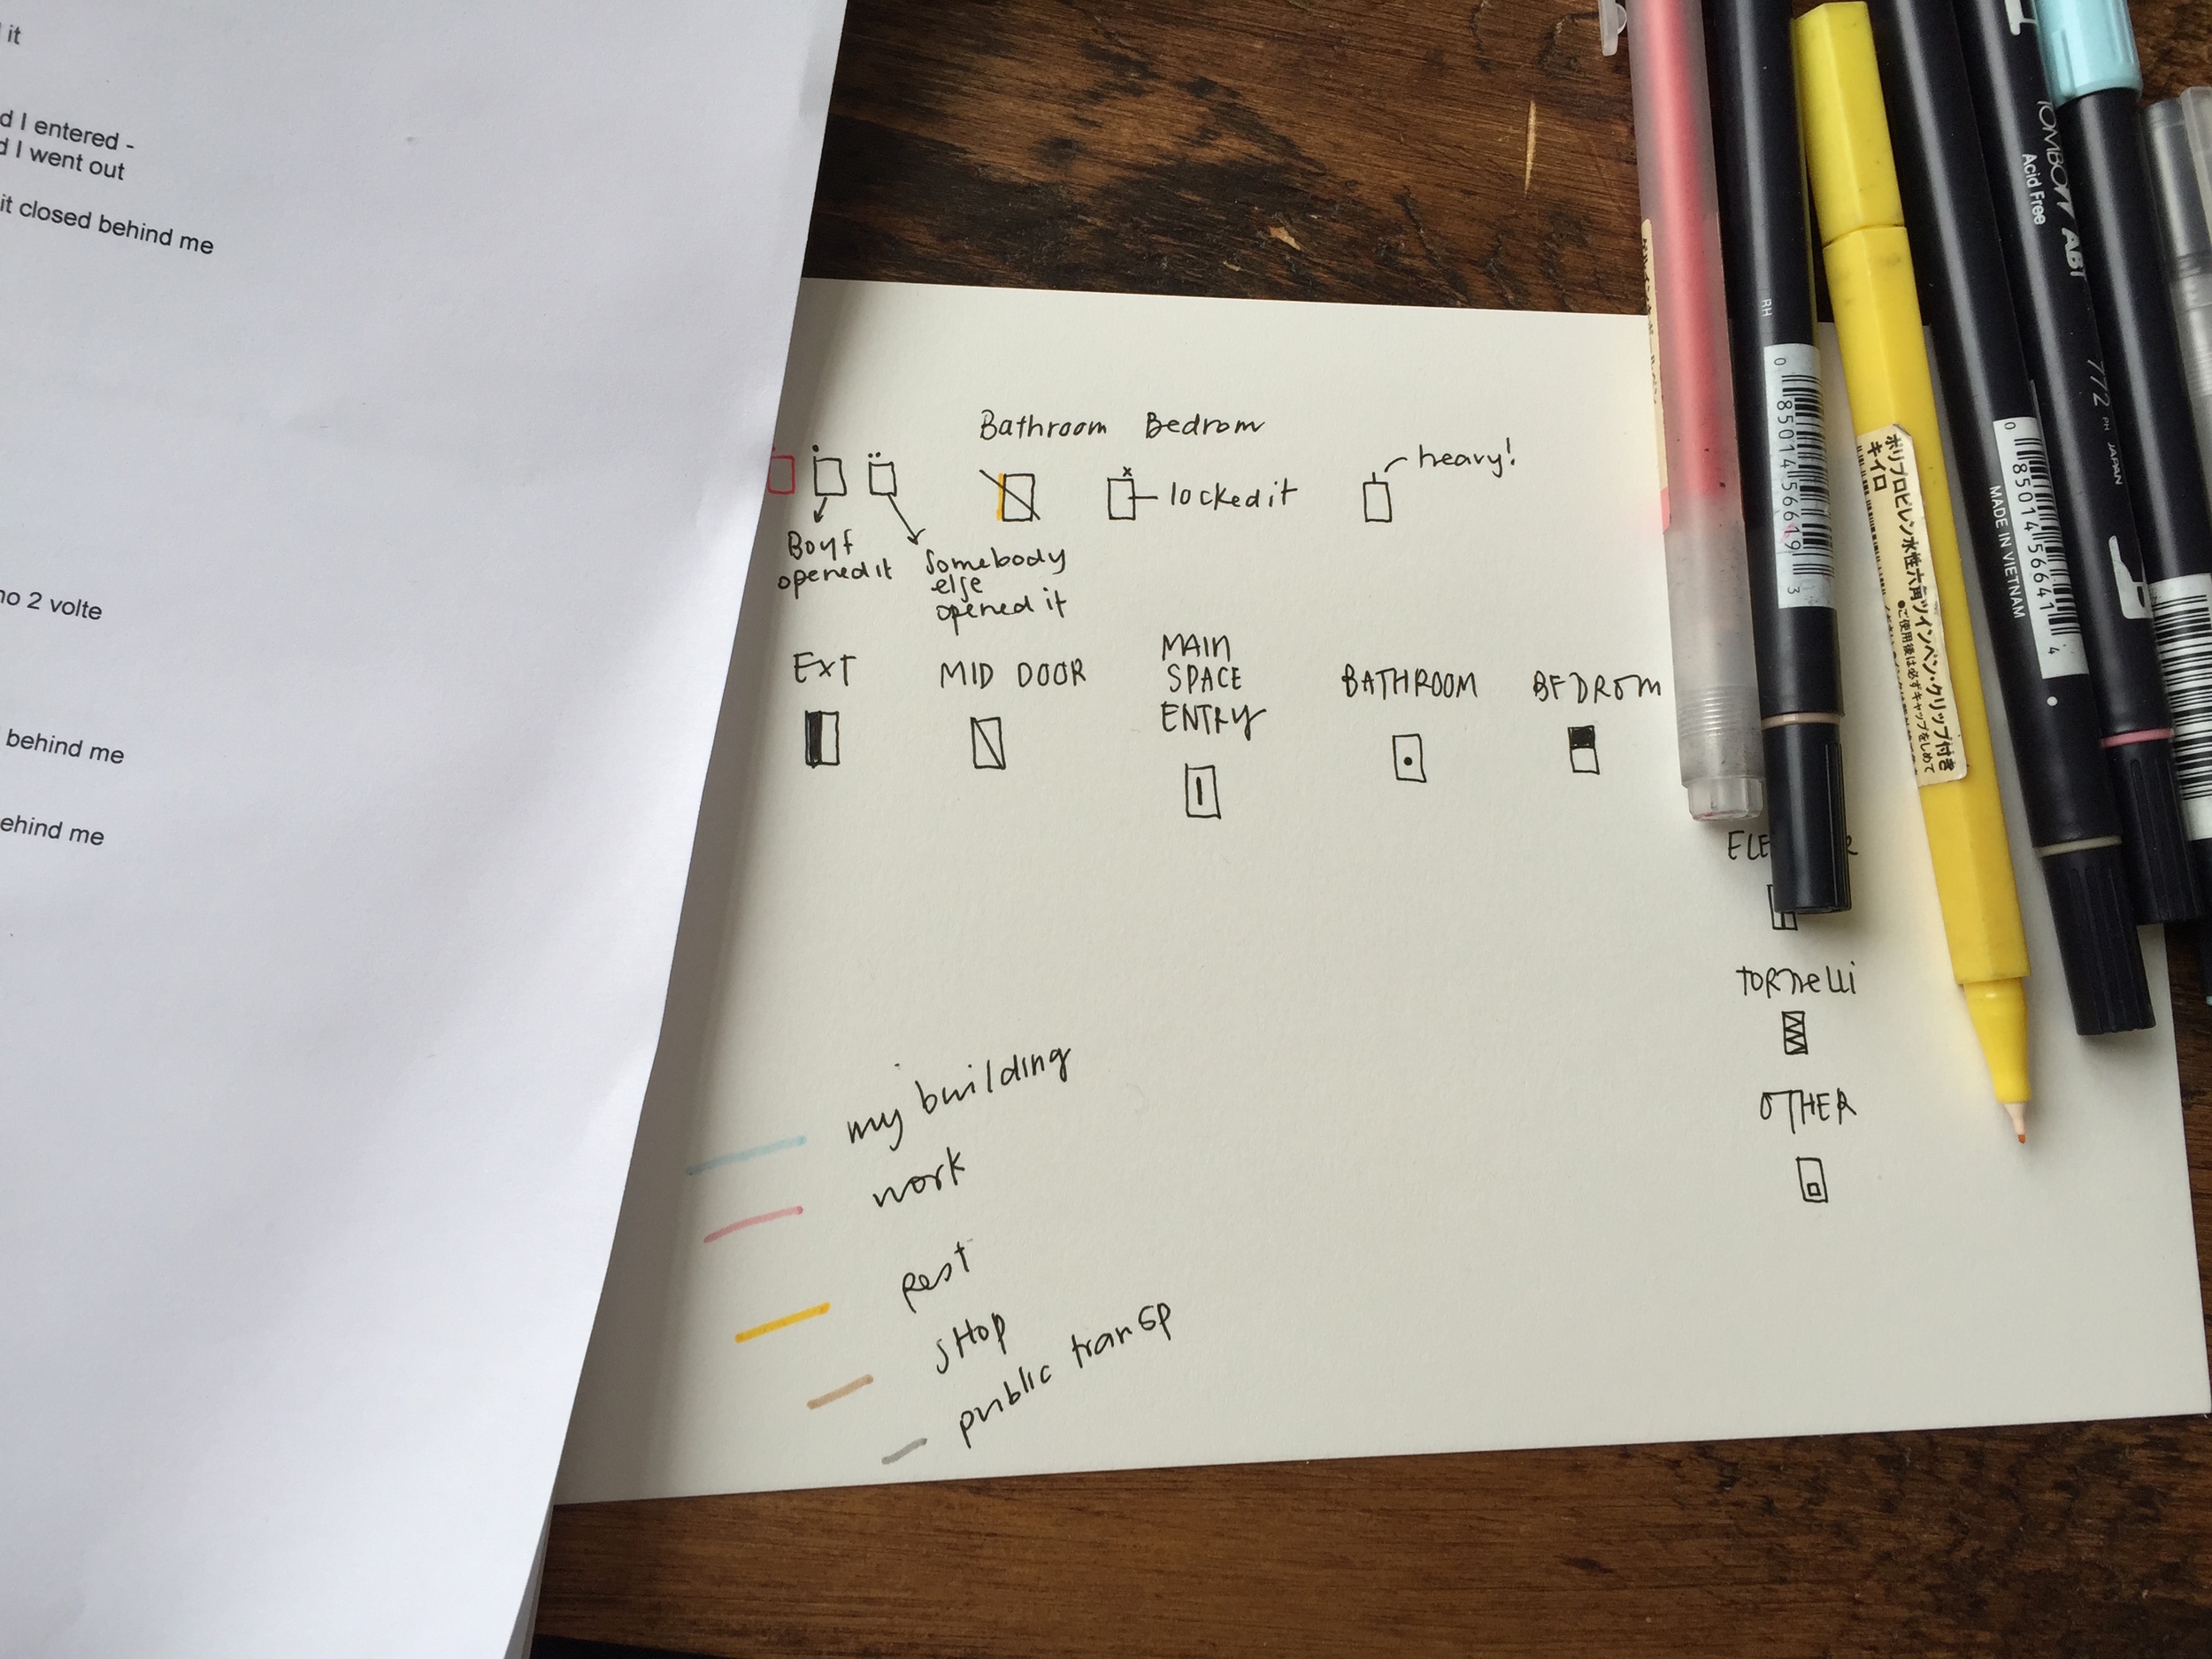 it
d I entered -
d I went out
it closed behind me
no 2 volte
behind me
ehind me
Bathroom Bedrom
heavy!
locked it
Boyf
opened it
Somebody
else
opened it
EXT
MID DOOR
MAIN
SPACE
ENTRY
BATHROOM
BEDROM
TORNELLI
OTHER
my building
work
rest
SHOP
public transp
RH
0 85014 56619 3
ポリプロピレン水性六角ツインペン・クリップ付き
キイロ
●ご使用後は必ずキャップをしめて
0 85014 56641 4
MADE IN VIETNAM
TOMBOW ABT
Acid Free
772 PH JAPAN